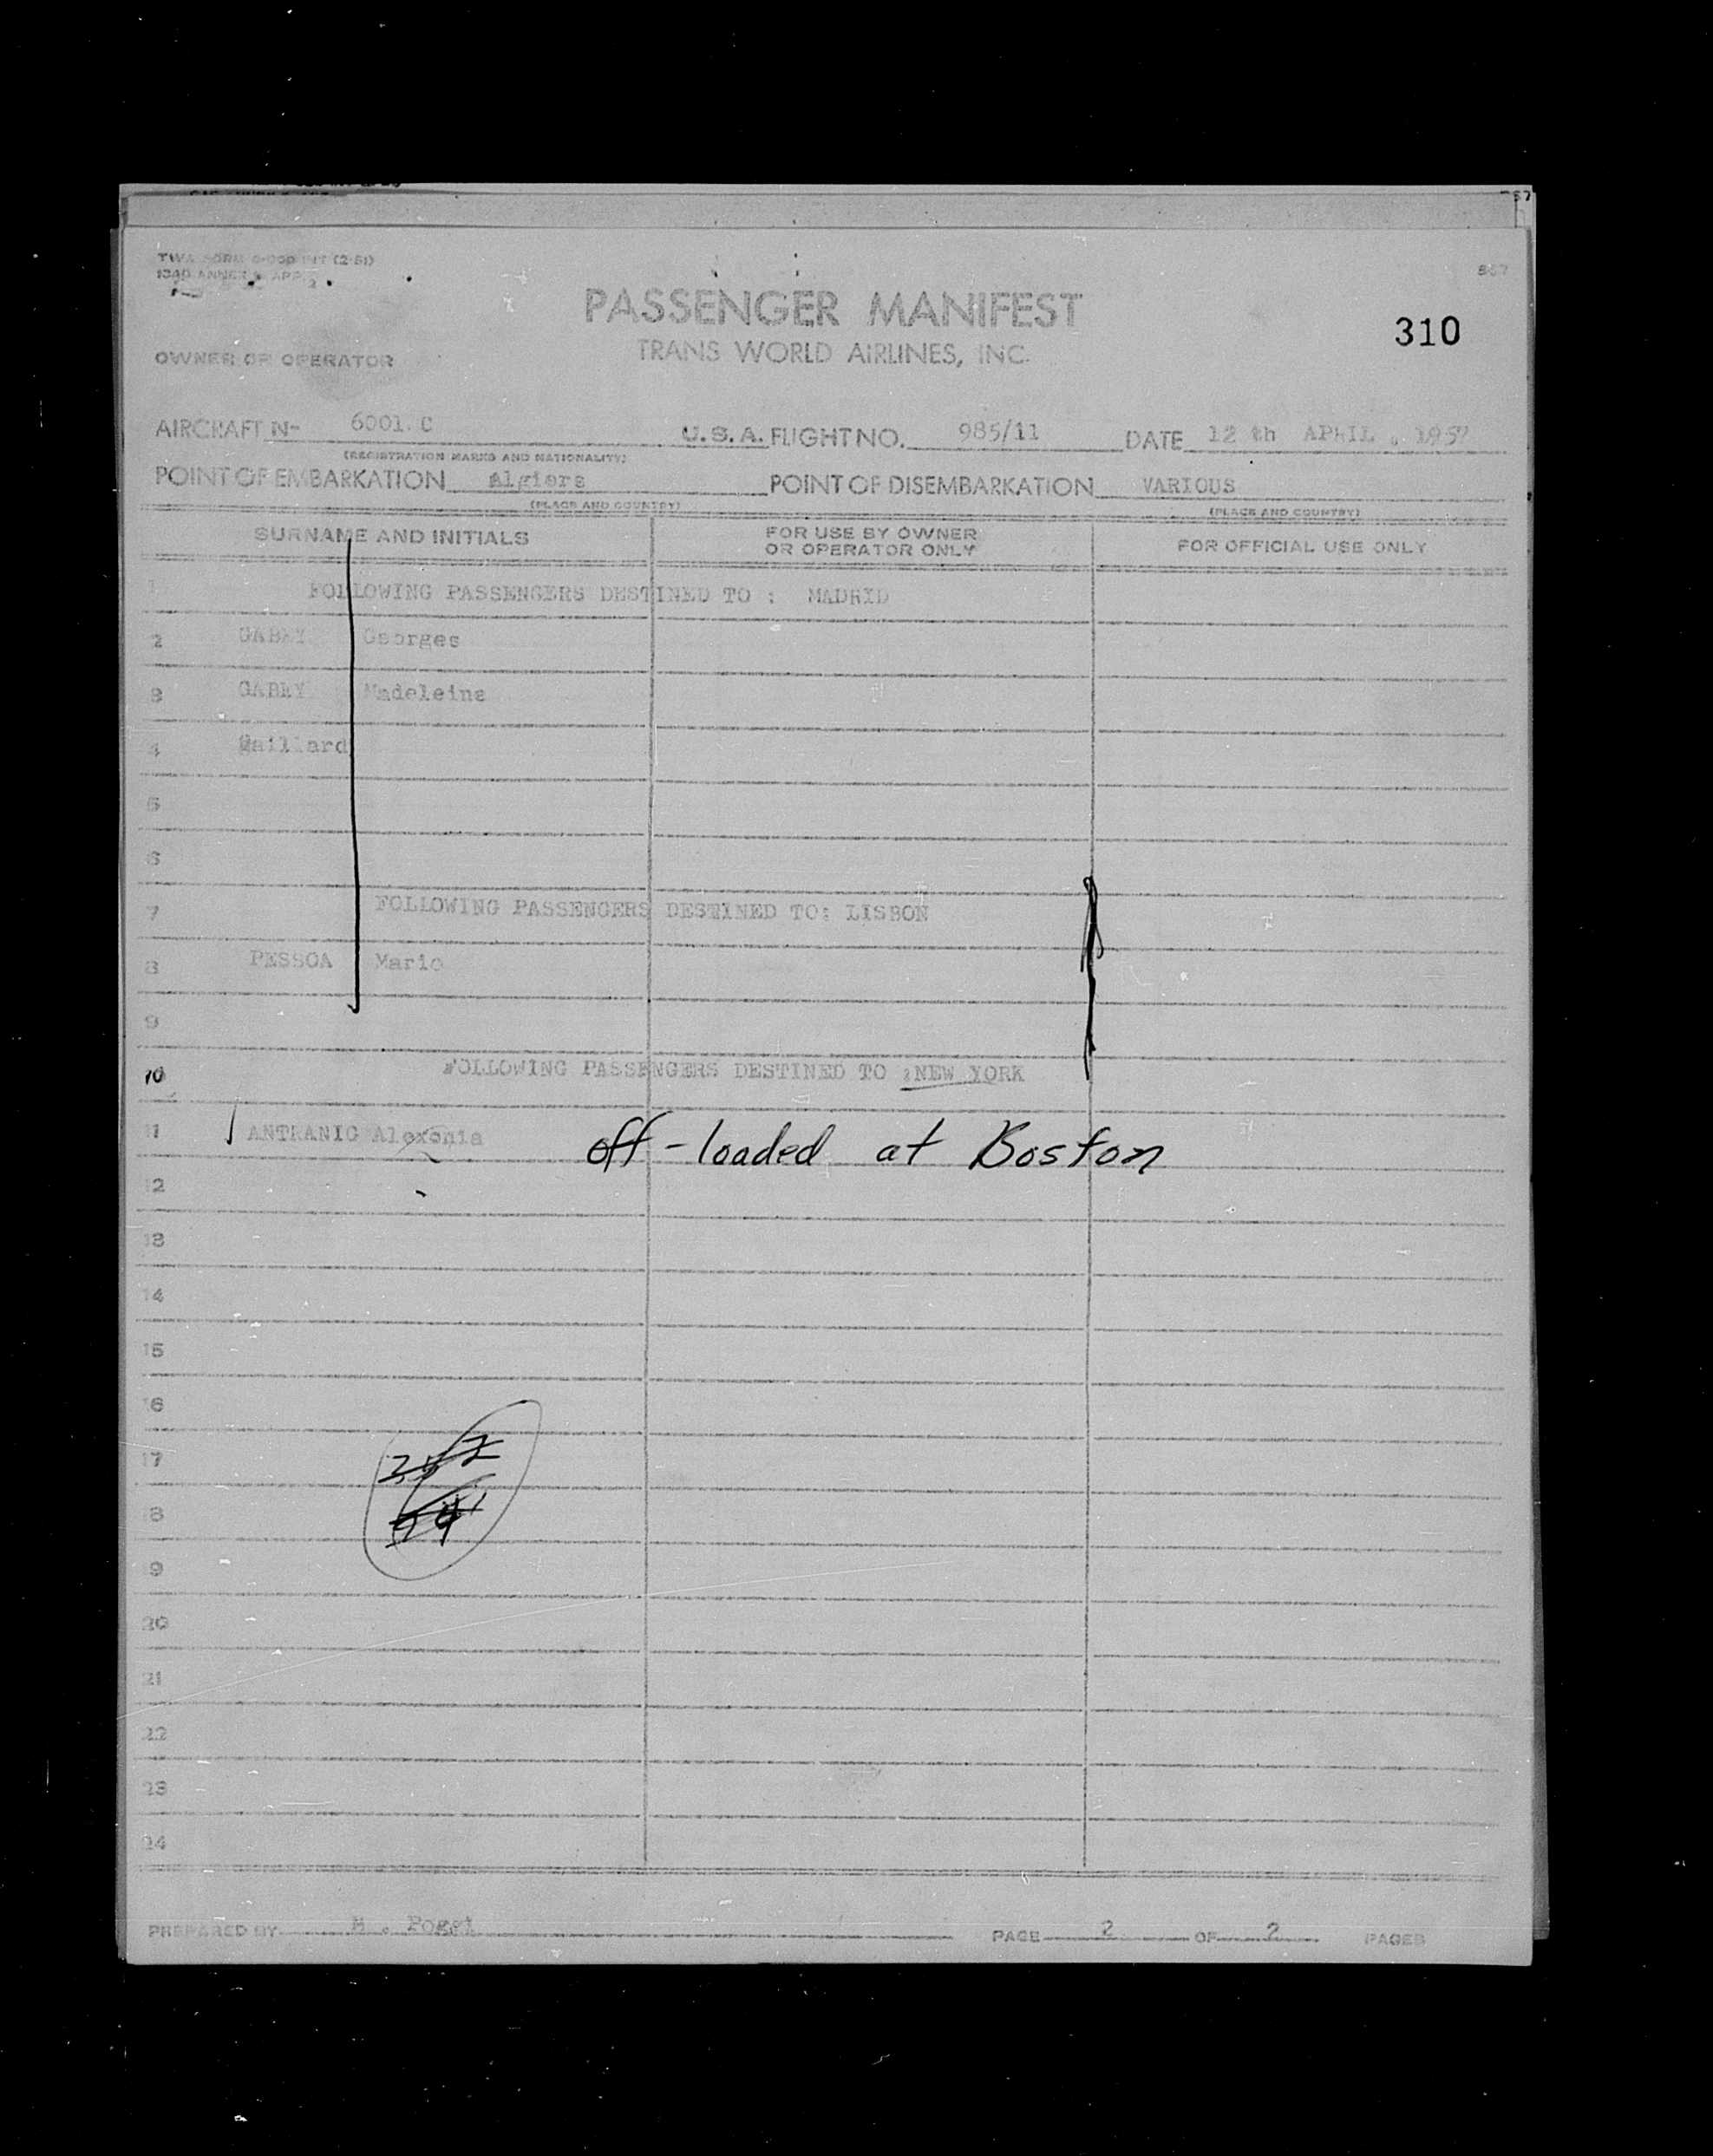 567
PASSENGER MANIFEST
310
TRANS WORLD AIRLINES, INC.
OWNER OR OPERATOR
AIRCRAFT N- 6001.C U.S.A. FLIGHT NO. 985/11 DATE 12 th APRIL . 1957
(REGISTRATION MARKS AND NATIONALITY)
POINT OF EMBARKATION Algiers POINT OF DISEMBARKATION VARIOUS
(PLACE AND COUNTRY) (PLACE AND COUNTRY)
SURNAME AND INITIALS FOR USE BY OWNER OR OPERATOR ONLY FOR OFFICIAL USE ONLY
1 FOLLOWING PASSENGERS DESTINED TO : MADRID
2 GABEY Georges
3 GABEY Madeleine
4 Gaillard
5
6
7 FOLLOWING PASSENGERS DESTINED TO: LISBON
8 PESSOA Mario
9
10 FOLLOWING PASSENGERS DESTINED TO :NEW YORK
11 ANTRANIC Alexonia off-loaded at Boston
12
13
14
15
16
17
18
19
20
21
22
23
24
PREPARED BY M. Poget PAGE 2 OF 2 PAGES